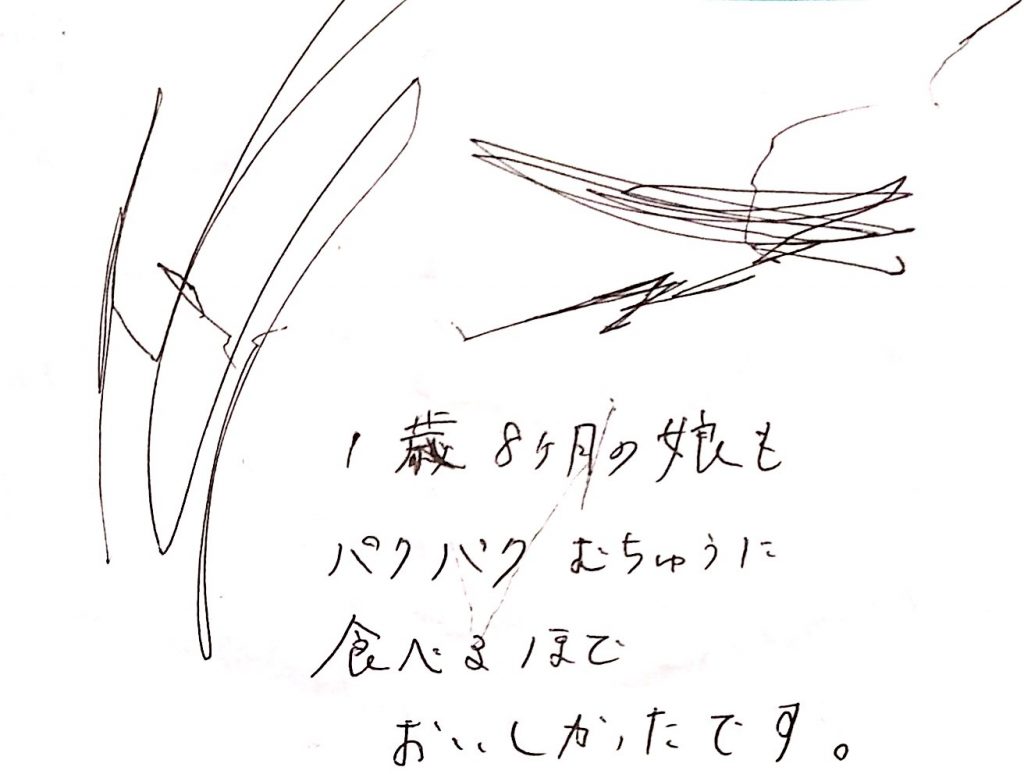 1歳8ヶ月の娘も
パクパクむちゅうに
食べるほどで
おいしかったです。